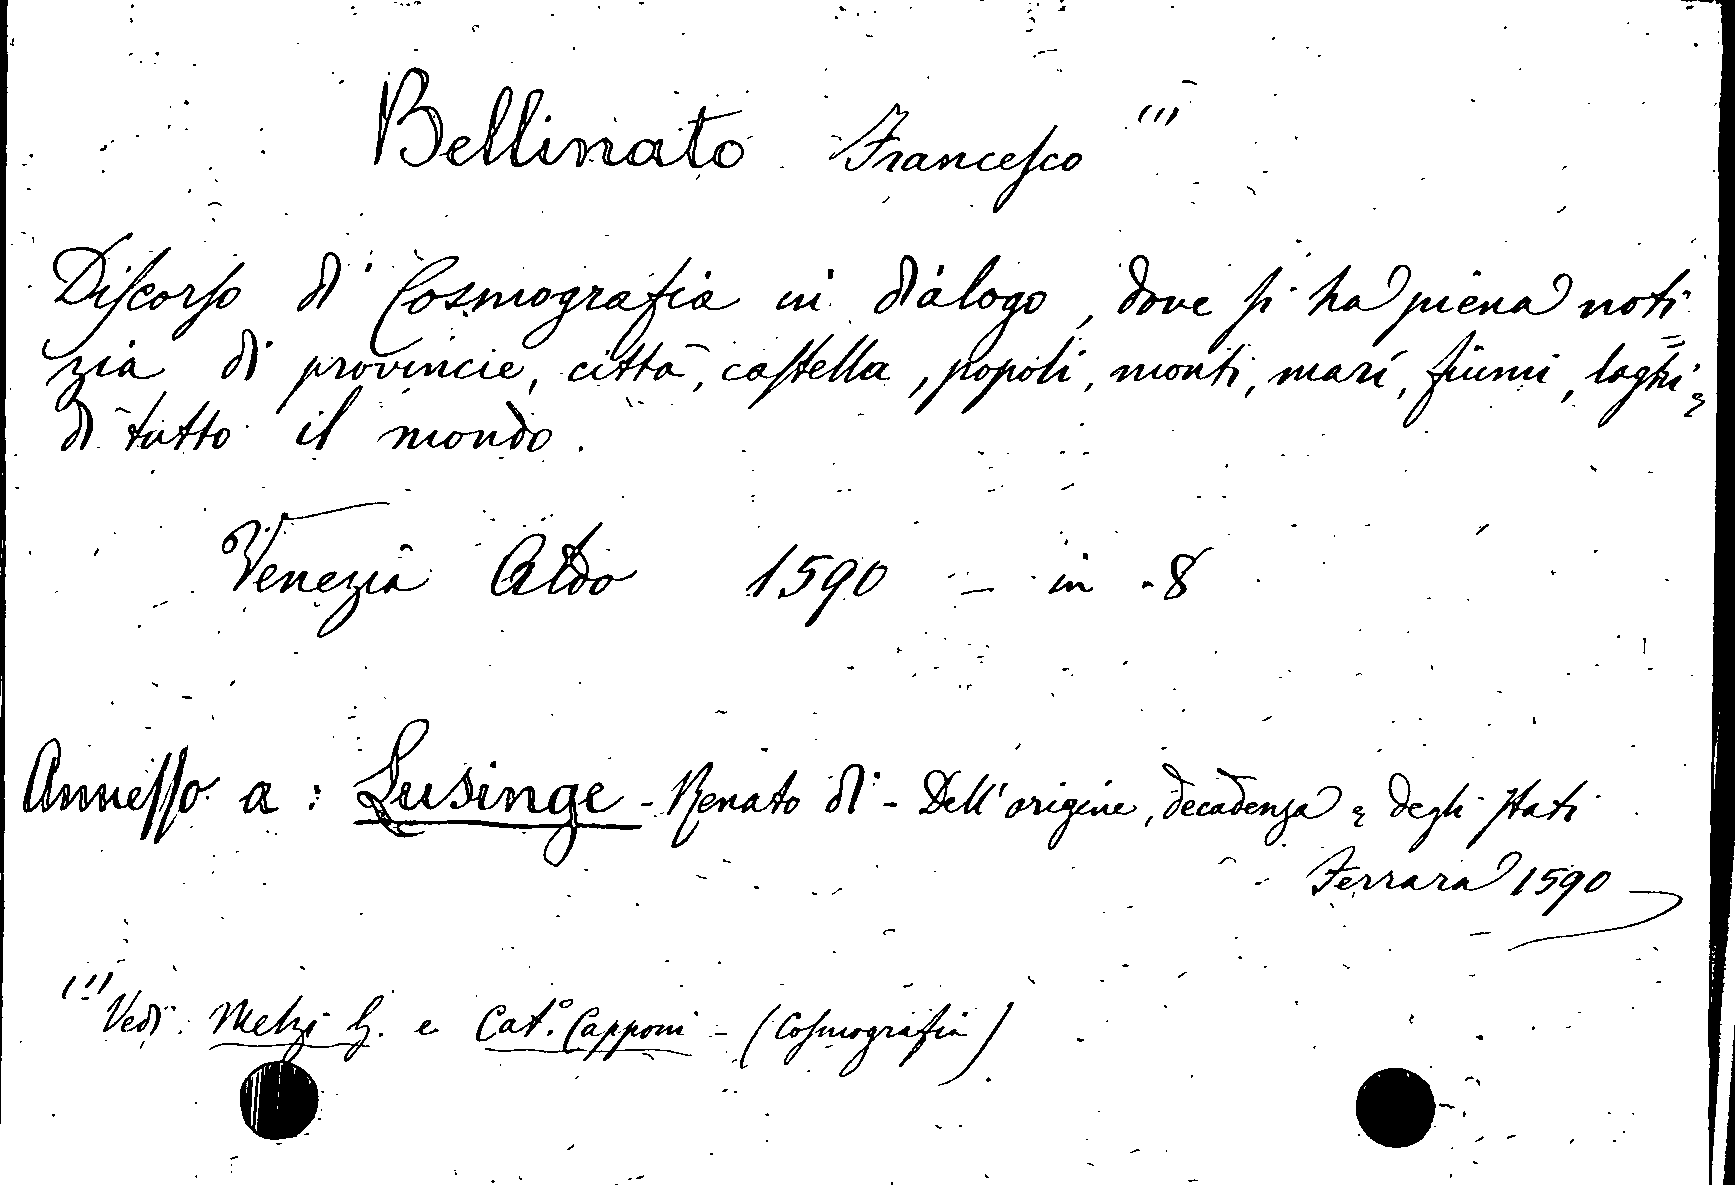 Bellinato Francesco (1)
Discorso di Cosmografia in dialogo, dove si ha piena noti=
zia di provincie, città, castella, popoli, monti, mari, fiumi, laghi,
di tutto il mondo.
Venezia Aldo 1590 - in - 8
Annesso a: Lusinge - Renato di - Dell'origine, decadenza & degli stati
Ferrara 1590
(1) Vedi Melzi G. e Cat.º Capponi - (Cosmografia)